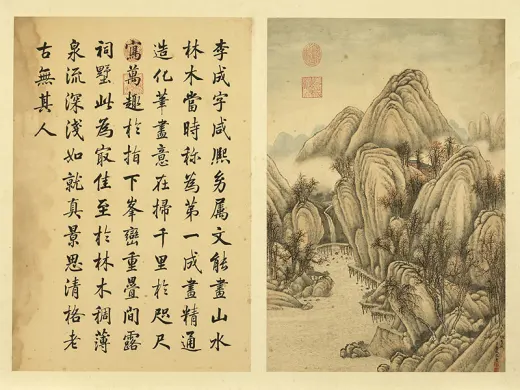 李成字咸熙属文能畫山水
林木當時称為第一成畫精通
造化筆盡意在掃千里於咫尺
寫萬趣於指下峯巒重疊間露
祠墅此為冣佳至於林木稠薄
泉流深淺如就真景思清格老
古無其人